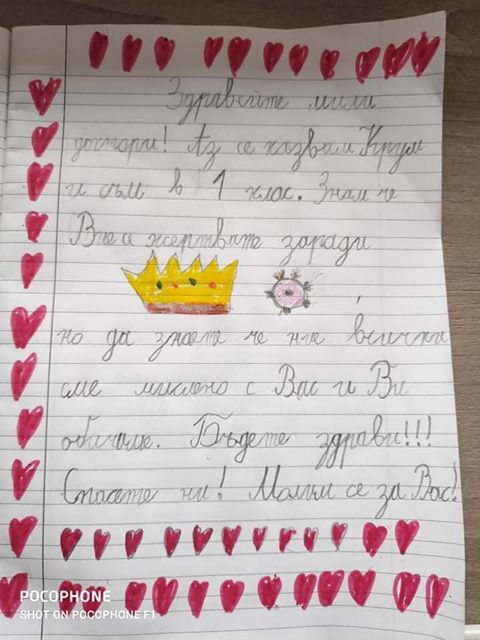 Здравейте мили
доктори! Аз се казвам Крум
и съм в 1 клас. Знам че
Вие се жертвате заради
но да знаете че ние всички
сме мислено с Вас и Ви
обичаме. Бъдете здрави!!!
Спасете ни! Молим се за Вас!
POCOPHONE
SHOT ON POCOPHONE F1